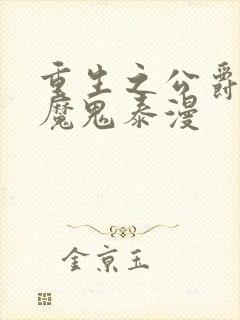 重生之公爵
魔鬼泰漫
金京玉